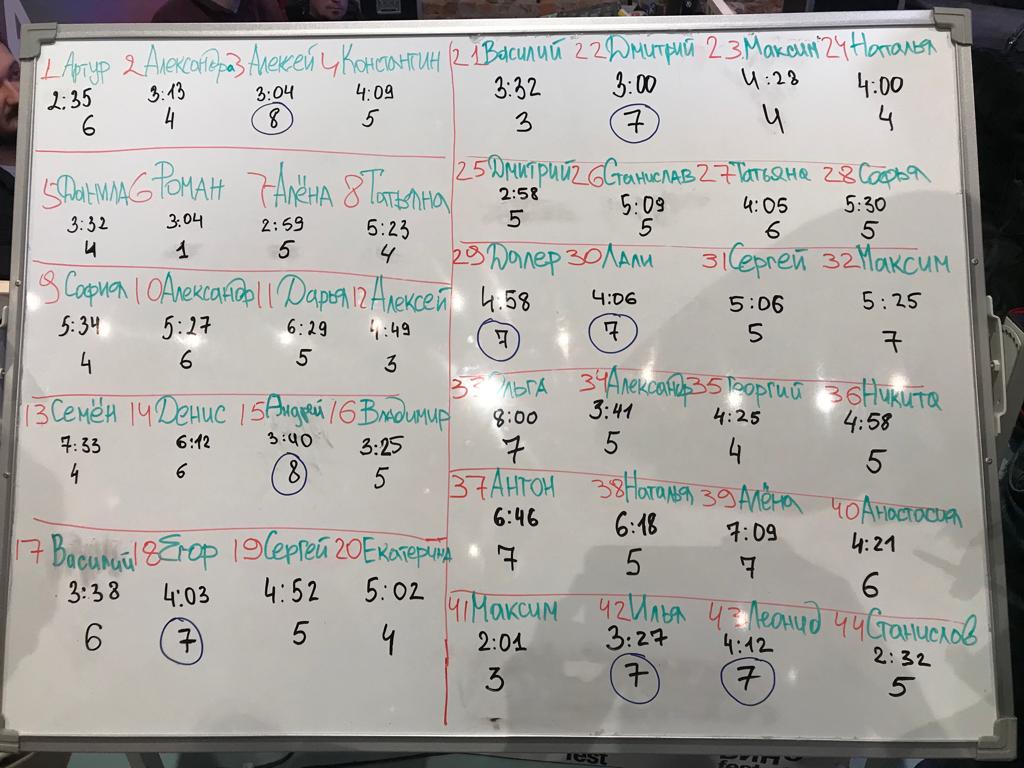 1 Артур 2 Александра 3 Алексей 4 Константин
2:35 3:13 3:04 4:09
6 4 8 5
5 Данила 6 Роман 7 Алёна 8 Татьяна
3:32 3:04 2:59 5:23
4 1 5 4
9 София 10 Александр 11 Дарья 12 Алексей
5:34 5:27 6:29 4:49
4 6 5 3
13 Семён 14 Денис 15 Андрей 16 Владимир
7:33 6:12 3:40 3:25
4 6 8 5
17 Василий 18 Егор 19 Сергей 20 Екатерина
3:38 4:03 4:52 5:02
6 7 5 4
21 Василий 22 Дмитрий 23 Максим 24 Наталья
3:32 3:00 4:28 4:00
3 7 4 4
25 Дмитрий 26 Станислав 27 Татьяна 28 Софья
2:58 5:09 4:05 5:30
5 5 6 5
29 Далер 30 Лали 31 Сергей 32 Максим
4:58 4:06 5:06 5:25
7 7 5 7
33 Ольга 34 Александр 35 Георгий 36 Никита
8:00 3:41 4:25 4:58
7 5 4 5
37 Антон 38 Наталья 39 Алёна 40 Анастасия
6:46 6:18 7:09 4:21
7 5 7 6
41 Максим 42 Илья 43 Леонид 44 Станислов
2:01 3:27 4:12 2:32
3 7 7 5
fest